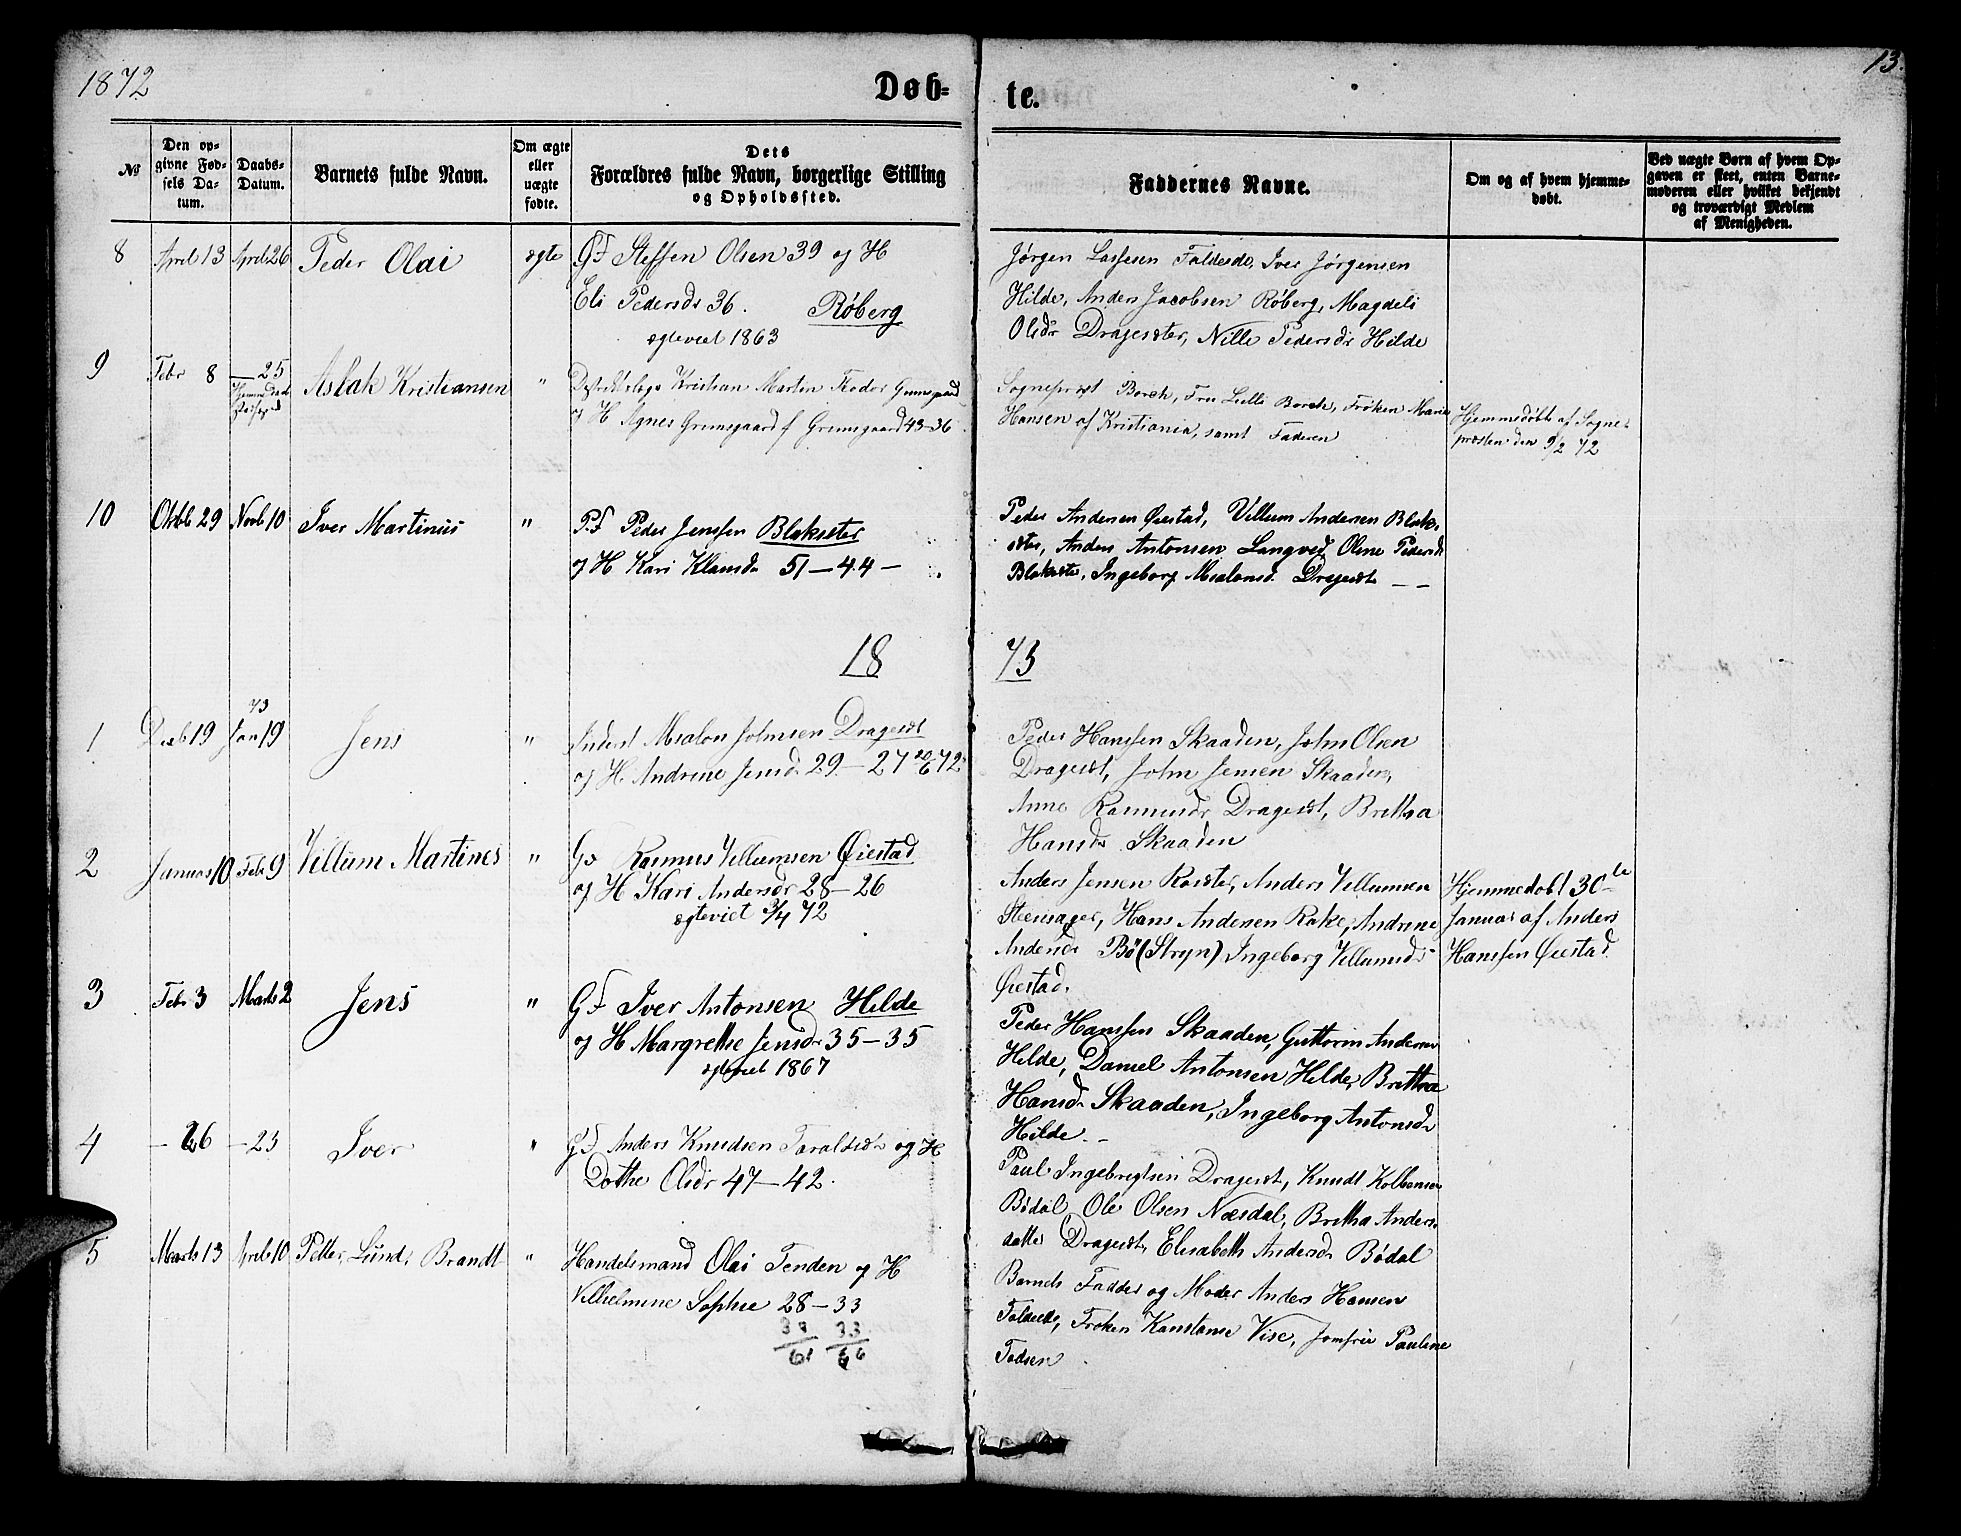 1872
Døb-
te.
13.
№
Den op-
givne Fød-
sels Da-
tum.
Daabs-
Datum.
Barnets fulde Navn.
Om ægte
eller
uægte
fødte.
Dets
Forældres fulde Navn, borgerlige Stilling
og Opholdssted.
Faddernes Navne.
Om og af hvem hjemme-
døbt.
Ved uægte Børn af hvem Op-
gaven er skeet, enten Barne-
moderen eller hvilket bekjendt
og troværdigt Medlem
af Menigheden.
8 April 13 April 26 Peder Olai ægte GF Steffen Olsen 39 og H
Eli Pedersdr 36. Røberg
ægteviet 1863
Jørgen Lassesen Faldesde, Iver Jørgensen
Hilde, Anders Jacobsen Røberg, Magdeli
Olsdr Dragester, Nille Pedersdr Hilde
9 Febr 8 — 25 Aslak Kristiansen " Kristian Martin
og H Agnes Grimsgaard f Grimsgaard 43-36
Sogneprest Borch, Fru Lulli Borch, Frøken Marie
Hansen af Kristiania, samt Faderen
Hjemmedøbt af Sogne-
præsten den 9/2 72
10 Oktb 29 Novb 10 Iver Martinus " PF Peder Jenssen Blakseter
og H Kari Klausdr 51 — 44 —
Peder Andersen Øiestad, Villum Andersen Blak-
sæter, Anders Antonsen Langved, Oline Pedersdr
Blaksæte, Ingeborg Dragesæt — —
18
73
1 Decb 19 73 Jan 19 Jens " Inderst Absalon Johnsen Dragesæt
og H Andrine Jensd. 29 — 27 20/6 72
Peder Hanssen Skaaden, John Olsen
Dragesæt, John Jensen Skaaden,
Anne Rasmusdr Dragesæt, Brittha
Hansdr Skaaden
2 Januar 10 Febr 9 Villum Martines " Rasmus Villumsen Øiestad
og H Kari Andersdr 28 — 26
ægteviet 3/4 72
Anders Jensen Anders Villumsen
Steensager, Hans Andersen Rake, Andrine
Andersdr Bø (Stryn) Ingeborg Villumsdr
Øiestad.
Hjemmedøbt 30te
Januar af Anders
Hanssen Øiestad
3 Febr 3 Marts 2 Jens " GF Iver Antonsen Hilde
og H Margrethe Jensdr 35 — 35
ægteviet 1867
Peder Hanssen Skaaden, Guttorm Andersen
Hilde, Daniel Antonsen Hilde, Brittha
Hansdr Skaaden, Ingeborg Antonsdr
Hilde. —
4 — 26 — 23 Iver " GF Anders Knudsen og H
Dorthe Olsdr 47 — 42.
Paul Ingebrigtsen Dragesæt, Knudt Kolbensen
Bødal, Ole Olsen Næsdal, Britha Anders-
datter Dragesæt, Elisabeth Andersdr Bødal
5 Marts 13 April 10 Petter, Lund, Brandt " Handelsmand Olai Tenden og H
Vilhelmine Sophie 28 — 33
33 33
61 66
Barnets Fadder og Moder Anders Hansen
Faldesde, Frøken Konstanse Vise, Jomfru Pauline
Todsen